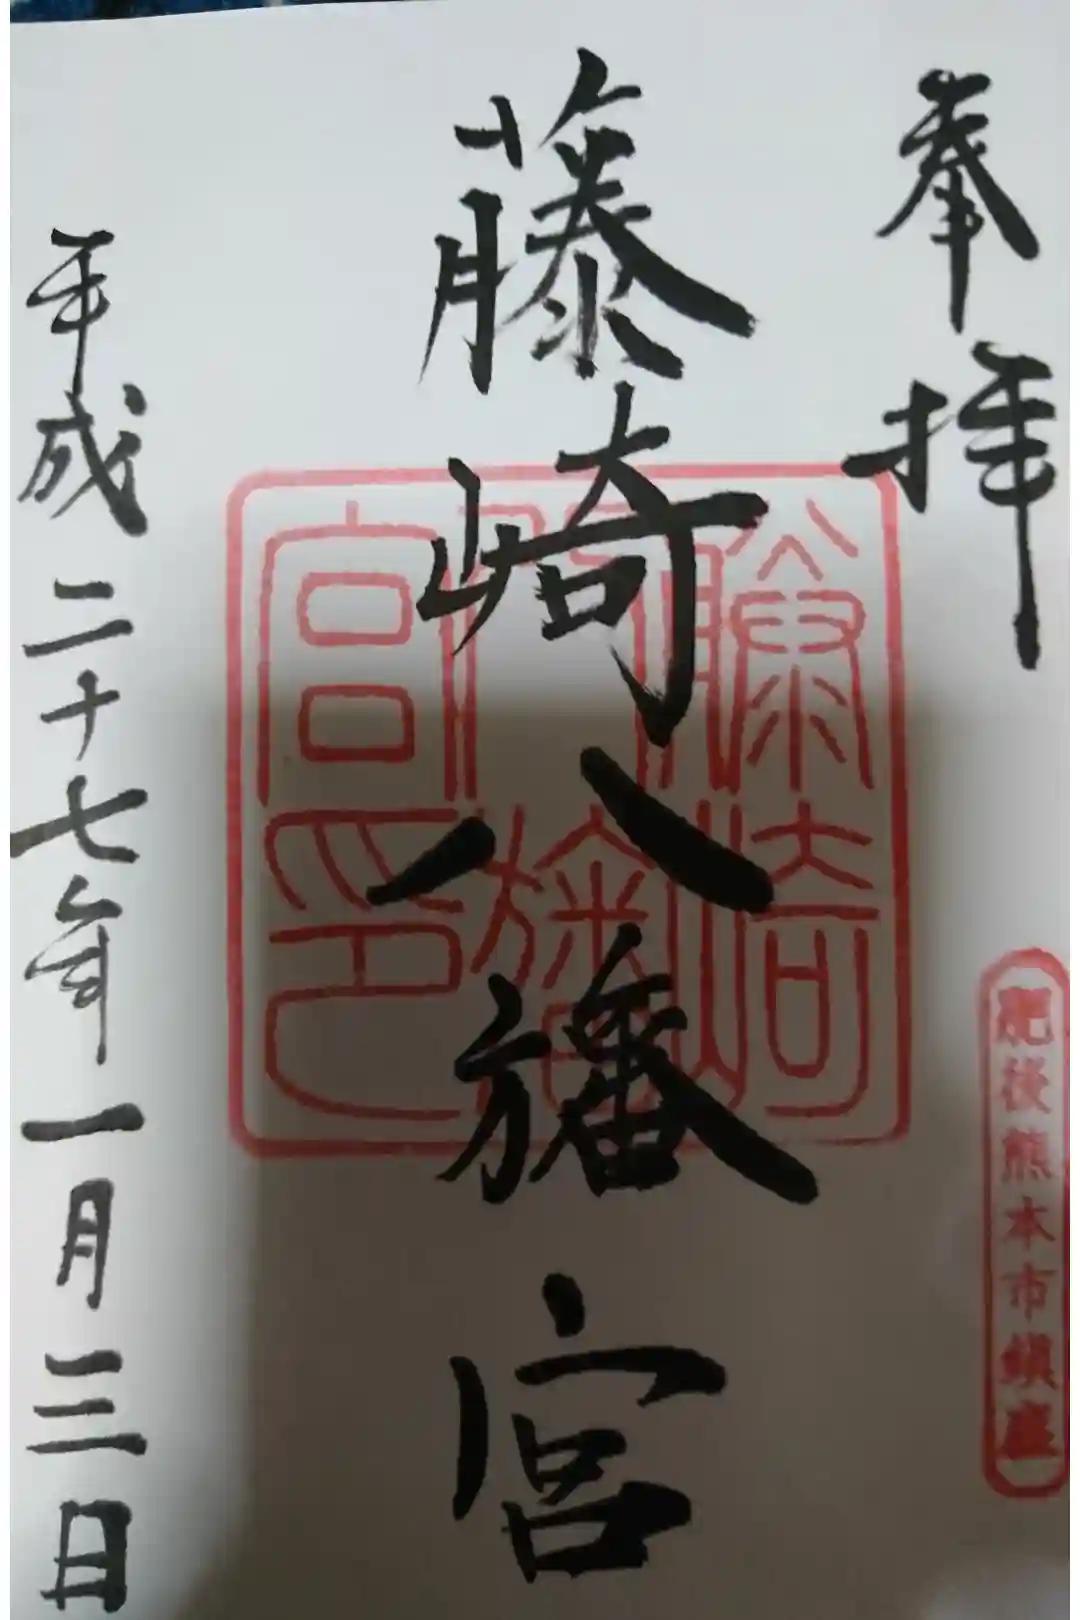 奉拝
肥後熊本市鎮座
藤崎八旛宮
藤崎八旛宮印
平成二十七年一月三日